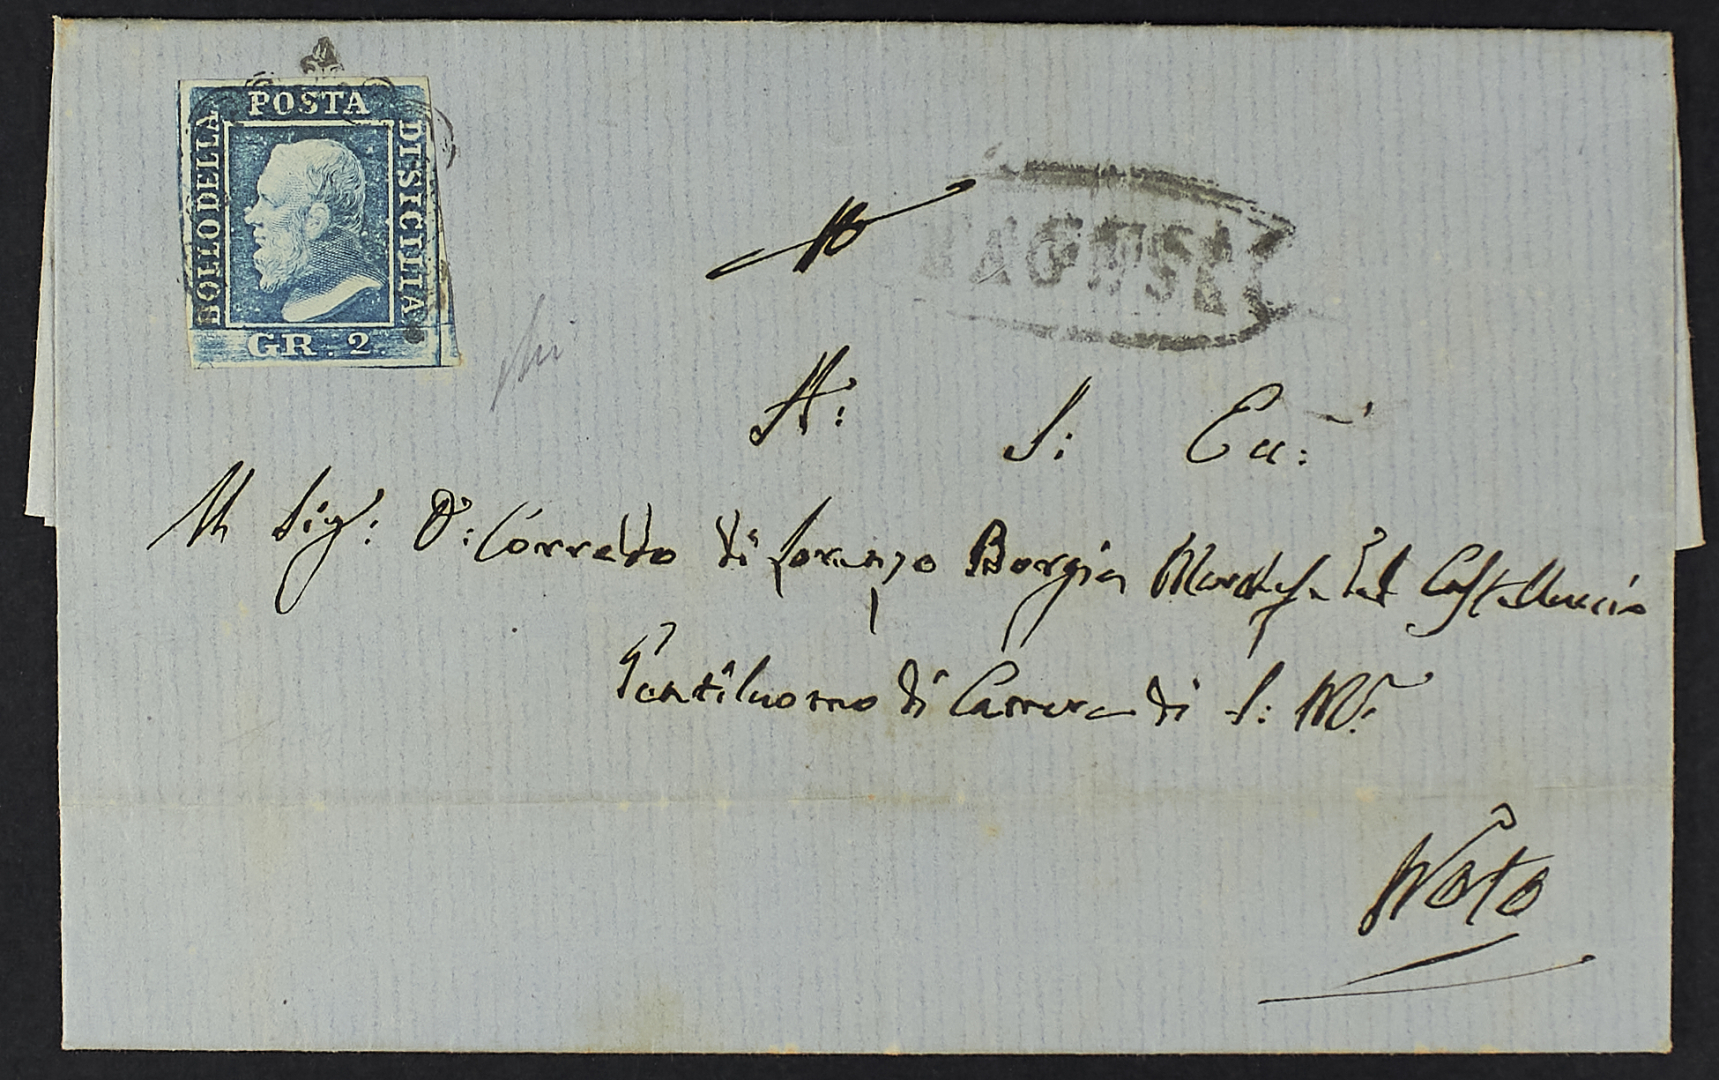 POSTA
BOLLO DELLA
DI SICILIA
GR. 2.
RAGUSA
A: S: Ecc:
Al Sig: D: Corrado di Lorenzo Borgia Marchese del Castelluccio
Gentiluomo di Camera di S: M:
Noto